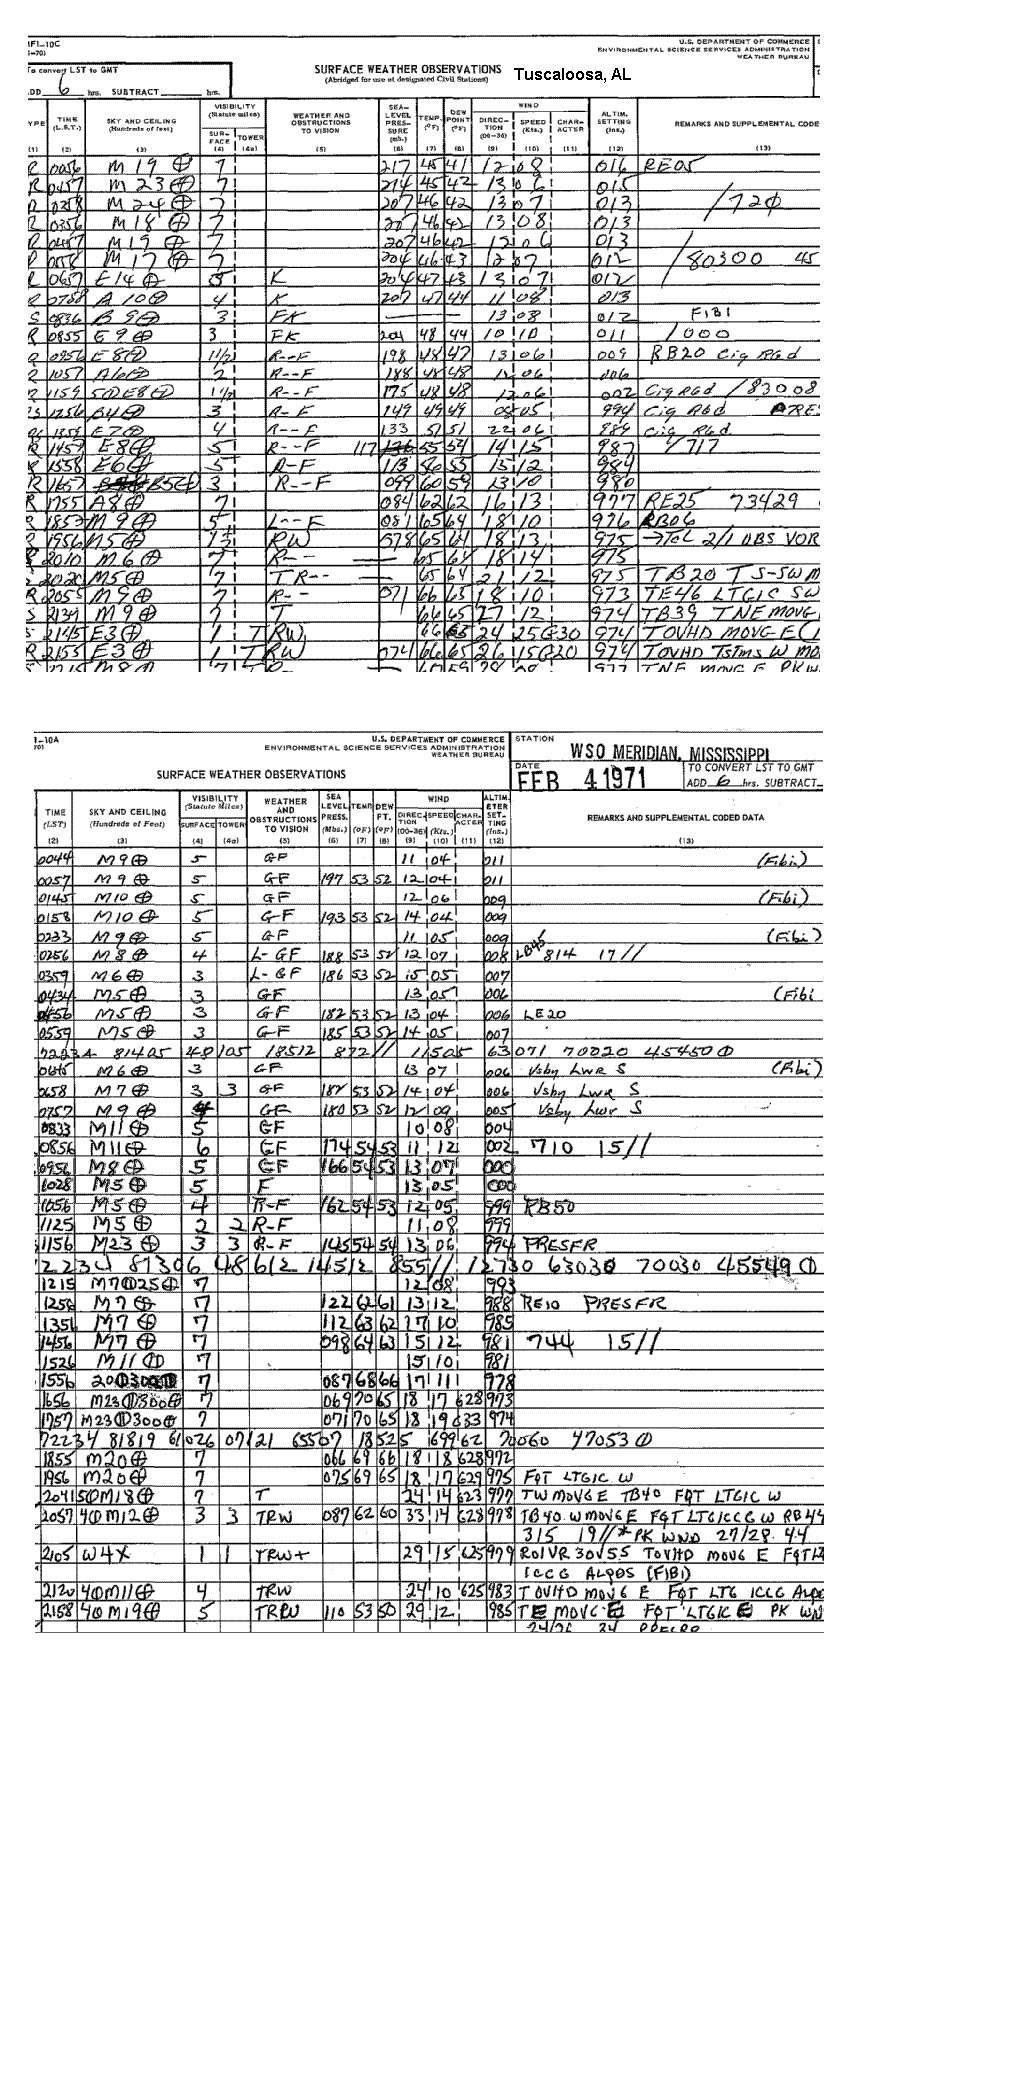 MF1-10C
U.S. DEPARTMENT OF COMMERCE
ENVIRONMENTAL SCIENCE SERVICES ADMINISTRATION
WEATHER BUREAU
To convert LST to GMT
ADD 6 hrs. SUBTRACT hrs.
SURFACE WEATHER OBSERVATIONS Tuscaloosa, AL
(Abridged for use at designated Civil Stations)
TYPE TIME (L.S.T.) SKY AND CEILING (Hundreds of feet) VISIBILITY (Statute miles) SURFACE TOWER WEATHER AND OBSTRUCTIONS TO VISION SEA-LEVEL PRESSURE (mb.) TEMP. (°F) DEW POINT (°F) WIND DIRECTION (00-36) SPEED (Kts.) CHARACTER ALTIM. SETTING (ins.) REMARKS AND SUPPLEMENTAL CODE
(1) (2) (3) (4) (4a) (5) (6) (7) (8) (9) (10) (11) (12) (13)
R 0056 M 19 ⊕ 7 217 45 41 12 08 016 RE05
M 23 ⊕ 7 214 45 42 13 06 015
M 24 ⊕ 7 207 46 42 13 07 013 /720
R 0356 M 18 ⊕ 7 207 46 42 13 08 013
R 0457 M 19 ⊕ 7 207 46 42 12 06 013
M 17 ⊕ 7 204 46 43 12 07 012 /80300 45
R 0657 E 14 ⊕ 5 K 204 47 43 13 07 012
A 10 ⊕ 4 K 207 47 44 11 08 013
S 0836 B 9 ⊕ 3 FK 13 08 012 FIBI
R 0855 E 9 ⊕ 3 FK 201 48 44 10 10 011 1000
0956 E 8 ⊕ 1 1/2 R--F 198 48 47 13 06 009 RB20 Cig Rgd
1057 A 6 ⊕ 2 R--F 188 48 48 06 006
1159 5⊕E8⊕ 1 1/2 R--F 175 48 48 12 06 002 Cig Rgd /83008
S 1256 B4⊕ 3 R-F 149 49 49 05 994 Cig Rgd
E7⊕ 4 R--F 133 51 51 22 06 989 Cig Rgd
R 1457 E8⊕ 5 R--F 117 55 54 14 15 987 /717
R 1558 E6⊕ 5 R-F 113 56 55 13 12 984
R 1657 B5⊕ 3 R--F 099 60 59 13 10 980
R 1755 A8⊕ 7 084 62 62 16 13 977 RE25 73429
R 1853 M 9 ⊕ 5 L--F 081 65 64 18 10 976 RB06
R 1956 M5⊕ RW 078 65 64 18 13 975 →Tel 2/1 OBS VOR
2010 M 6 ⊕ 7 R-- 65 64 18 14 975
2020 M5⊕ 7 TR-- 65 64 21 12 975 TB20 TS-SW M
R 2055 M 9⊕ 7 R-- 071 66 65 18 10 973 TE46 LTGIC SW
S 2139 M 9⊕ 7 T 66 65 27 12 974 TB39 TNE MOVG
S 2145 E3⊕ 1 TRW 66 65 24 25G30 974 TOVHD MOVG E
R 2153 E3⊕ 1 TRW 074 66 65 26 15G20 974 TOVHD TSTMS W MO
M8⊕ TNE MOVG E PK W
1-10A
U.S. DEPARTMENT OF COMMERCE
ENVIRONMENTAL SCIENCE SERVICES ADMINISTRATION
WEATHER BUREAU
SURFACE WEATHER OBSERVATIONS
STATION
WSO MERIDIAN, MISSISSIPPI
DATE FEB 4 1971
TO CONVERT LST TO GMT
ADD 6 hrs. SUBTRACT
TIME (LST) SKY AND CEILING (Hundreds of Feet) VISIBILITY (Statute Miles) SURFACE TOWER WEATHER AND OBSTRUCTIONS TO VISION SEA LEVEL PRESS. (Mbs.) TEMP. (°F) DEW PT. (°F) WIND DIRECTION (00-36) SPEED (Kts.) CHARACTER ALTIMETER SETTING (ins.) REMARKS AND SUPPLEMENTAL CODED DATA
(2) (3) (4) (4a) (5) (6) (7) (8) (9) (10) (11) (12) (13)
0044 M 9 ⊕ 5 GF 11 04 011 (Fibi)
0057 M 9 ⊕ 5 GF 197 53 52 12 04 011
0145 M10 ⊕ 5 GF 12 06 009 (Fibi)
0158 M10 ⊕ 5 GF 193 53 52 14 04 009
0233 M 9 ⊕ 5 GF 11 05 009 (Fibi)
0256 M 8 ⊕ 4 L-GF 188 53 52 12 07 008 LB45 814 17//
0359 M 6 ⊕ 3 L-GF 186 53 52 15 05 007
0434 M5 ⊕ 3 GF 13 05 006 (Fibi
0456 M5 ⊕ 3 GF 182 53 52 13 04 006 LE20
0559 M5 ⊕ 3 GF 185 53 52 14 05 007
81405 18512 872// 11505 63071 70020 45450 ⦶
M 6 ⊕ 3 GF 13 07 006 Vsby Lwr S (Fibi)
0658 M 7 ⊕ 3 3 GF 182 53 52 14 04 006 Vsby Lwr S
0757 M 9 ⊕ 4 GF 180 53 52 12 09 005 Vsby Lwr S
0833 M11 ⊕ 5 GF 10 08 004
0856 M11⊕ 6 GF 174 54 53 11 12 002 710 15//
0956 M8 ⊕ 5 GF 166 54 53 13 07 000
1028 M5 ⊕ 5 F 13 05 000
1056 M5 ⊕ 4 R-F 162 54 53 12 05 999 RB50
1125 M5 ⊕ 2 2 R-F 11 08 999
1156 M23 ⊕ 3 3 R-F 145 54 54 13 06 994 PRESFR
72234 81306 48612 14512 855// 12730 63030 70030 45549 ⦶
1215 M7⦶25⊕ 7 12 08 993
1256 M7 ⊕ 7 122 62 61 13 12 988 RE10 PRESFR
1356 M7 ⊕ 7 112 63 62 17 10 985
1456 M7 ⊕ 7 098 64 63 15 12 981 744 15//
1526 M11 ⦶ 7 15 10 981
1556 20⦶300⦶ 7 087 68 66 17 11 978
1656 M23⦶300⊕ 7 069 70 65 18 17 G28 973
1757 M23⦶300⊕ 7 071 70 65 18 19 G33 974
72234 81819 61026 07121 65507 18525 69962 70060 47053 ⦶
1855 M20⊕ 7 066 69 66 18 18 G28 972
1956 M20⊕ 7 075 69 65 18 17 G29 975 FQT LTGIC W
2041 5⦶M18⊕ 7 T 24 14 G23 977 TW MOVG E TB40 FQT LTGIC W
2057 4⦶M12⊕ 3 3 TRW 087 62 60 33 14 G28 978 TB40 W MOVG E FQT LTGICCG W RB44
315 19// *PK WND 27/28 44
2105 W4X 1 1 TRW+ 29 15 G25 979 R01VR30V55 TOVHD MOVG E FQT
ICCG ALQDS (FIBI)
2120 4⦶M11⊕ 4 TRW 24 10 G25 983 TOVHD MOVG E FQT LTG ICCG ALQDS
2158 4⦶M19⊕ 5 TRW 110 53 50 29 12 985 TE MOVG E FQT LTGIC E PK WN